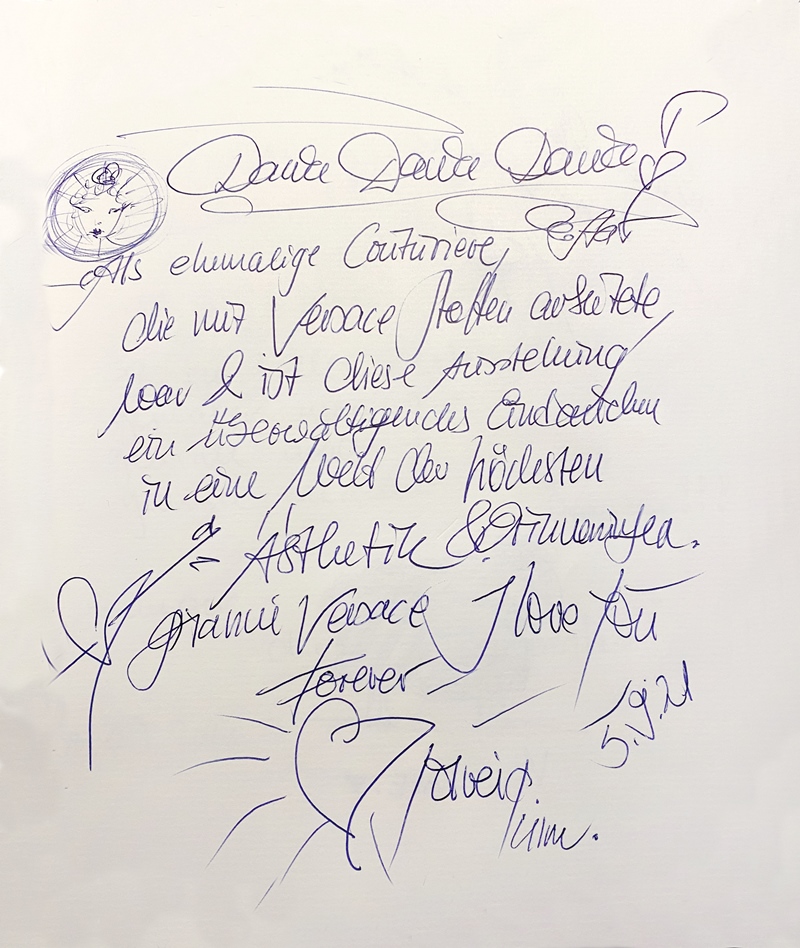 Danke Danke Danke
Als ehemalige Couturiere,
die mit Versace Stoffen arbeitete
war & ist diese Ausstellung
ein überwältigendes Eindauchen
in eine Welt der höchsten
Ästhetik &
gianni Versace I love You
forever
5.9.21